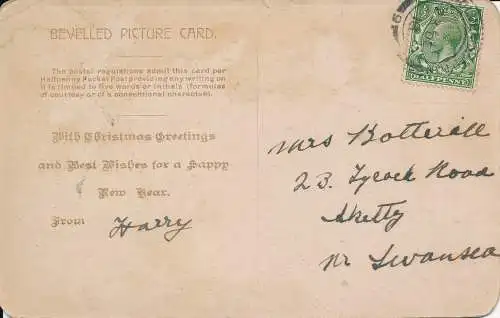 BEVELLED PICTURE CARD.
The postal regulations admit this card per
Halfpenny Packet Post providing any writing on
it is limited to five words or initials (formulas
of courtesy or of a conventional character).
With Christmas Greetings
and Best Wishes for a Happy
New Year.
From Harry
Mrs Botterill
23. Road
Sketty
Nr Swansea
HALFPENNY